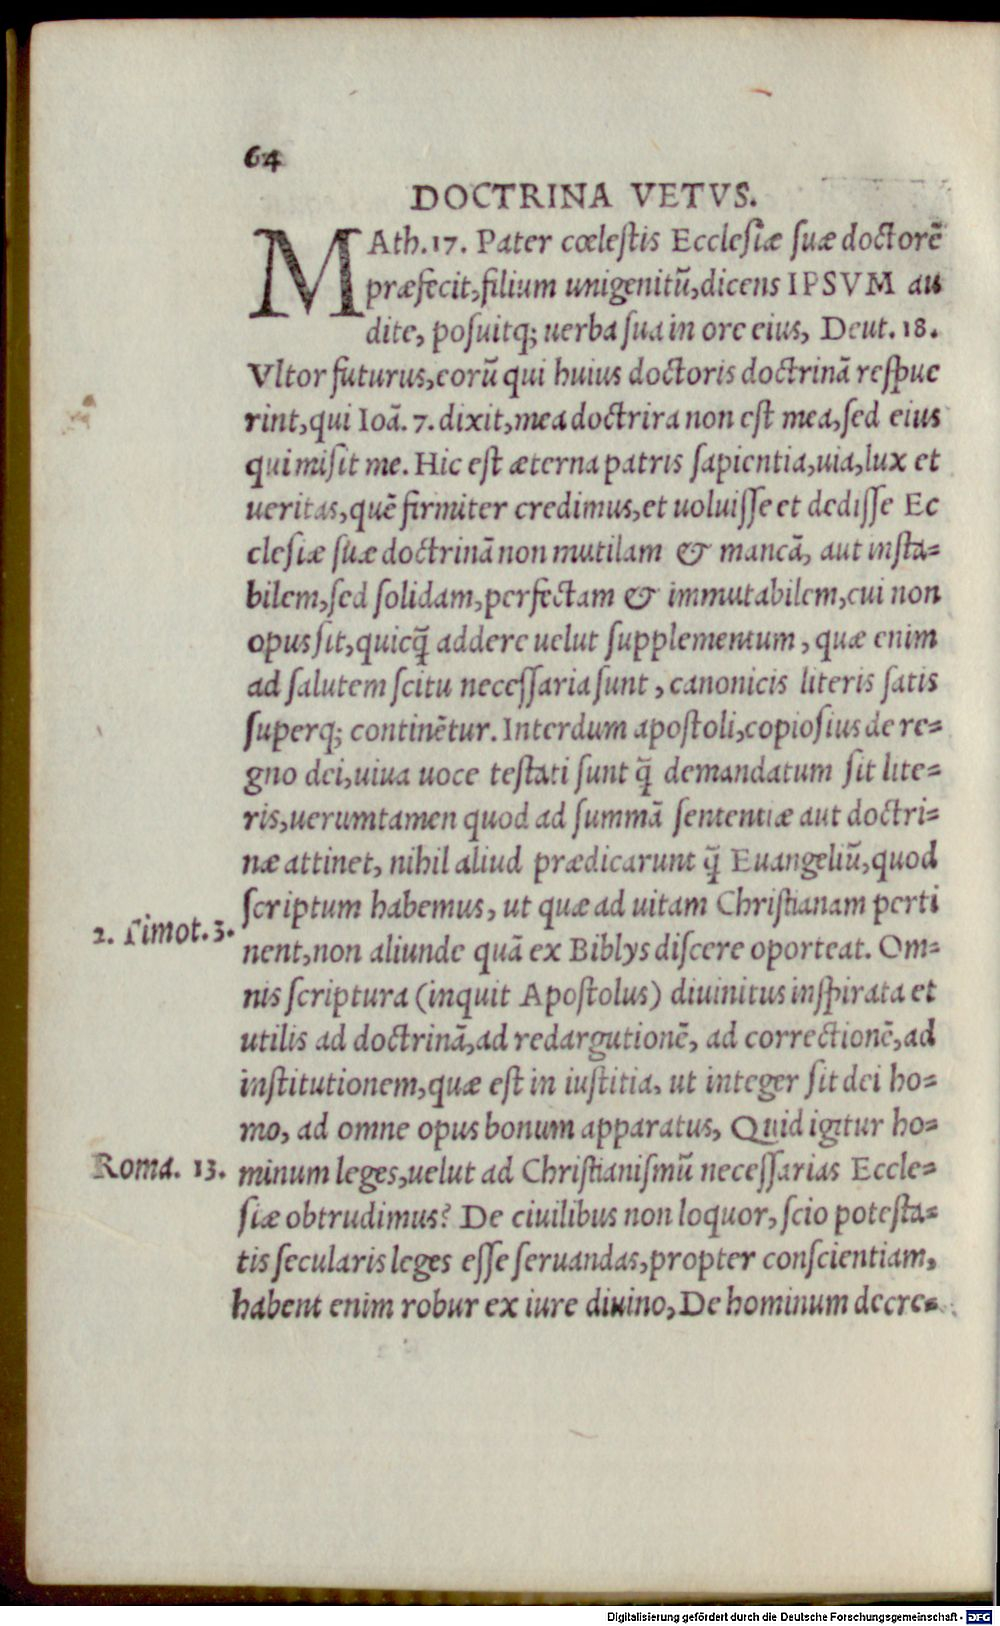 64
DOCTRINA VETVS.
MAth.17. Pater cœlestis Ecclesiæ suæ doctorē
præfecit, filium unigenitū, dicens IPSVM au
dite, posuitq; uerba sua in ore eius, Deut. 18.
Vltor futurus, eorū qui huius doctoris doctrinā respue
rint, qui Ioā. 7. dixit, mea doctrira non est mea, sed eius
qui misit me. Hic est æterna patris sapientia, uia, lux et
ueritas, quē firmiter credimus, et uoluisse et dedisse Ec
clesiæ suæ doctrinā non mutilam & mancā, aut insta=
bilem, sed solidam, perfectam & immutabilem, cui non
opus sit, quicq̃ addere uelut supplementum, quæ enim
ad salutem scitu necessaria sunt, canonicis literis satis
superq; continētur. Interdum apostoli, copiosius de re=
gno dei, uiua uoce testati sunt q̃ demandatum sit lite=
ris, uerumtamen quod ad summā sententiæ aut doctri=
næ attinet, nihil aliud prædicarunt q̃ Euangeliū, quod
scriptum habemus, ut quæ ad uitam Christianam perti
2. Timot. 3.
nent, non aliunde quā ex Biblys discere oporteat. Om=
nis scriptura (inquit Apostolus) diuinitus inspirata et
utilis ad doctrinā, ad redargutionē, ad correctionē, ad
institutionem, quæ est in iustitia, ut integer sit dei ho=
mo, ad omne opus bonum apparatus, Quid igitur ho=
Roma. 13.
minum leges, uelut ad Christianismū necessarias Eccle=
siæ obtrudimus? De ciuilibus non loquor, scio potesta=
tis secularis leges esse seruandas, propter conscientiam,
habent enim robur ex iure diuino, De hominum decre=
Digitalisierung gefördert durch die Deutsche Forschungsgemeinschaft - DFG